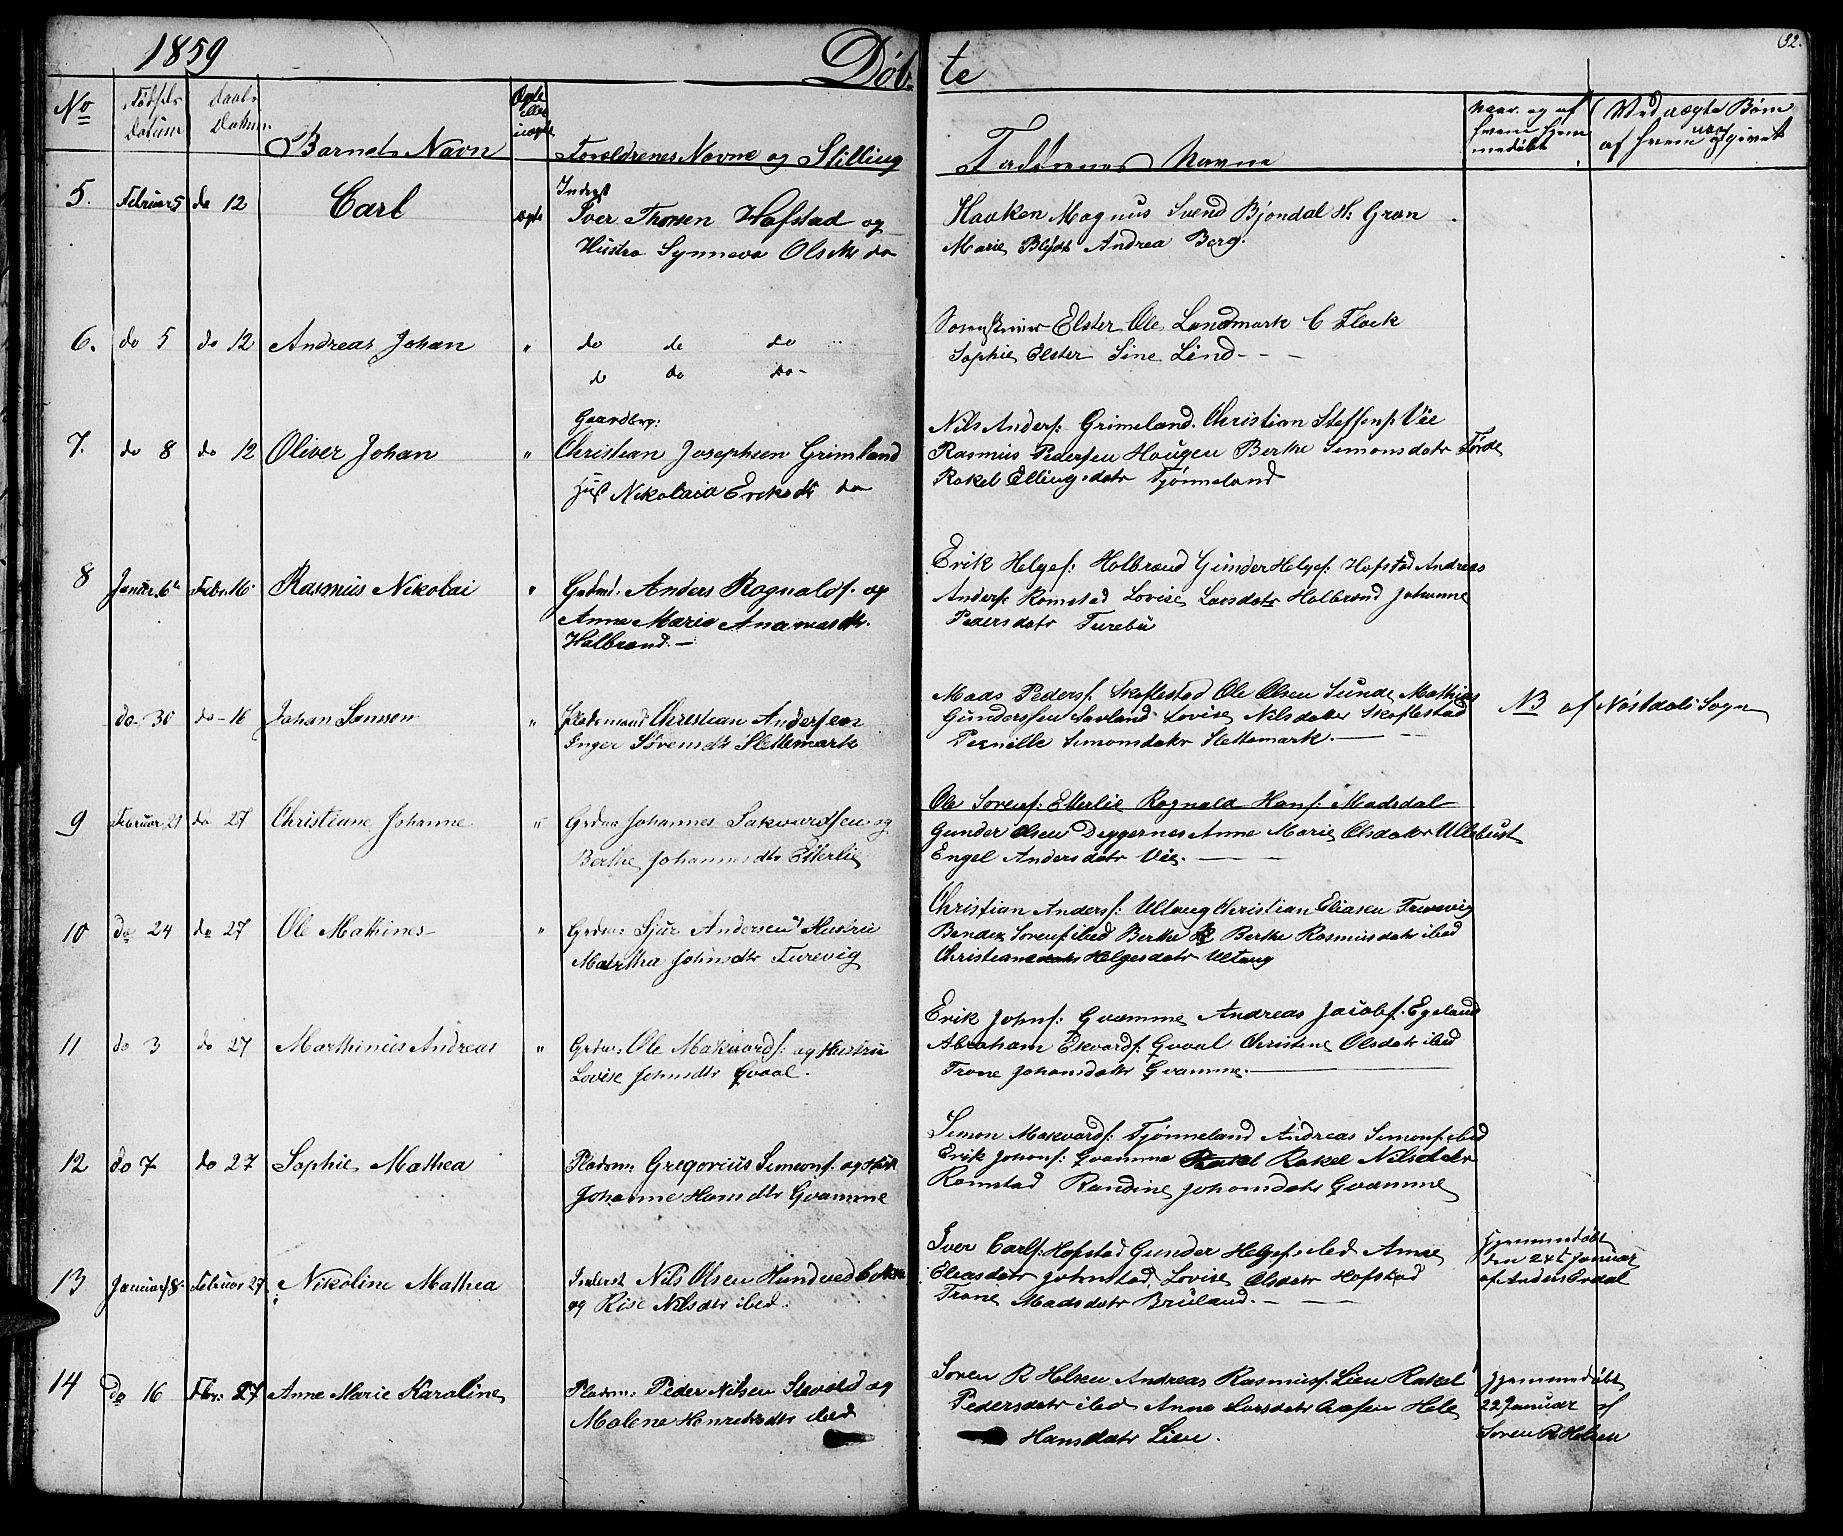 1859
Døbte
32.
No
Fødsels Datum
Daabs Datum
Barnets Navn
Ægte eller uægte
Forældrenes Navne og Stilling
Faddernes Navne
Naar og af hvem hjemmedøbt
Ved uægte Børn af hvem og givet
5. Februar 5 do 12 Carl Ægte
Inderst
Iver Thorsen Hofstad og
Hustro Synneva Olsdtr do
Haaken Magnus Svend Bjondal H: Grøn
Marie Blydt Andrea Berg.
6. do 5 do 12 Andreas Johan "
do do do
do do do -
Sorenskriver Elster Ole Landmark C Flock
Sophie Elster Sine Lind - -
7. do 8 do 12 Oliver Johan "
Gaardbrg:
Christian Josephsen Grimland
Hust Nikolaia Eriksdtr do
Nils Anders: Grimeland. Christian Steffens: Vie
Rasmus Pedersen Hougen Berthe Simonsdatr Førde
Rakel Ellingsdatr Tjønneland
8 Januar 6te Febr. 16. Rasmus Nikolai "
Grdmd. Anders Ragnalds. og
Anne Marie Ananiasdtr.
Halbrænd. -
Erik Helges: Halbrænd Gunder Helges: Hofstad Andreas
Anders: Romstad Lovise Larsdatr Halbrænd Johanne
Pedersdatr Furebø
do 30 do - 16 Johan Samson "
Pladsmand Christian Andersen
Inger Sørensdtr Slettemark
Mads Peders. Skaflestad Ole Olsen Sunde Mathias
Gundersen Savland Lovise Nilsdatter Skaflestad
Pernille Simonsdatr Slettemark. -
NB af Nøstdals Sogn
9 Februar 21 do 27 Christiane Johanne "
Grdm Johannes Sakvardsen og
Berthe Johannesdtr Etterlie
Ole Sørens: Etterlie Ragnald Hans: Madsdal
Gunder Olsen Diggernes Anne Marie Olsdatr Ullebust
Engel Andersdatr Vie. -
10 do 24 do 27 Ole Mathines "
Grdm: Sjur Andersen & Hustru
Martha Johnsdtr Furevig
Christian Anders: Ultang Christian Eliasen Furevig
Bendix Sørens ibid Berthe Berthe Rasmusdatr ibid
Christiane Helgesdatr Ultang
11 do 3 do 27 Marthinus Andreas "
Grdm: Ole Makvards: og Hustru
Lovise Johnsdtr Qvaal.
Erik Johns: Qvamme Andreas Jacobs. Egeland
Abraham Ekvards: Qvaal Christine Olsdatr ibid
Trone Johansdatr Qvamme. -
12 do 7 do 27 Sophie Mathea
Pladsm: Gregorius Simons. og Hust
Johanne Hansdtr Qvamme
Simon Makvards: Tjønneland Andreas Simons: ibid
Erik Johans: Qvamme Rakel Rakel Nilsdatr
Romstad Randine Johansdatr Qvamme
13 Januar 18. Februar 27 Nikoline Mathea
Inderst Nils Olsen Hundvedbakke
og Rise Nilsdtr ibid.
Iver Carls: Hofstad Gunder Helges: ibid Anne
Eliasdatr Johnstad Lovise Olsdatr Hofstad
Trone Madsdatr Bruland. -
Hjemmedøbt
den 24t Januar
af Anders Erdal
14 do 16 Febr: 27 Anne Marie Karoline
Pladsm: Peder Nilsen Slevold og
Malene Henriksdtr ibid
Søren R Helsen Andreas Rasmus: Lien Rakel
Pedersdatr ibid Anne Larsdatr Aasen Hele
Hansdatr Lien.
Hjemmedøbt
22 Januar af
Søren R Helsen